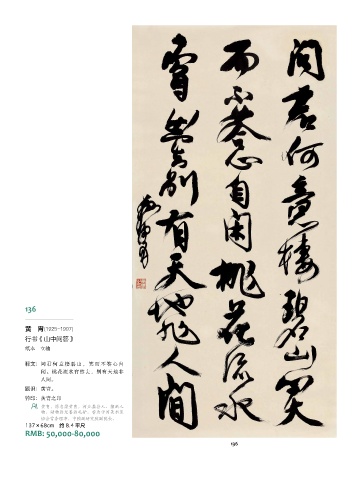 問君何意棲碧山笑
而不答心自闲桃花流水
窅然去别有天地非人間
136
黄 胄(1925-1997)
行书《山中问答》
纸本 立轴
释文：问君何意栖碧山，笑而不答心自
闲。桃花流水窅然去，别有天地非
人间。
款识：黄胄。
钤印：黄胄之印
137×68cm 约8.4平尺
RMB: 50,000-80,000
136